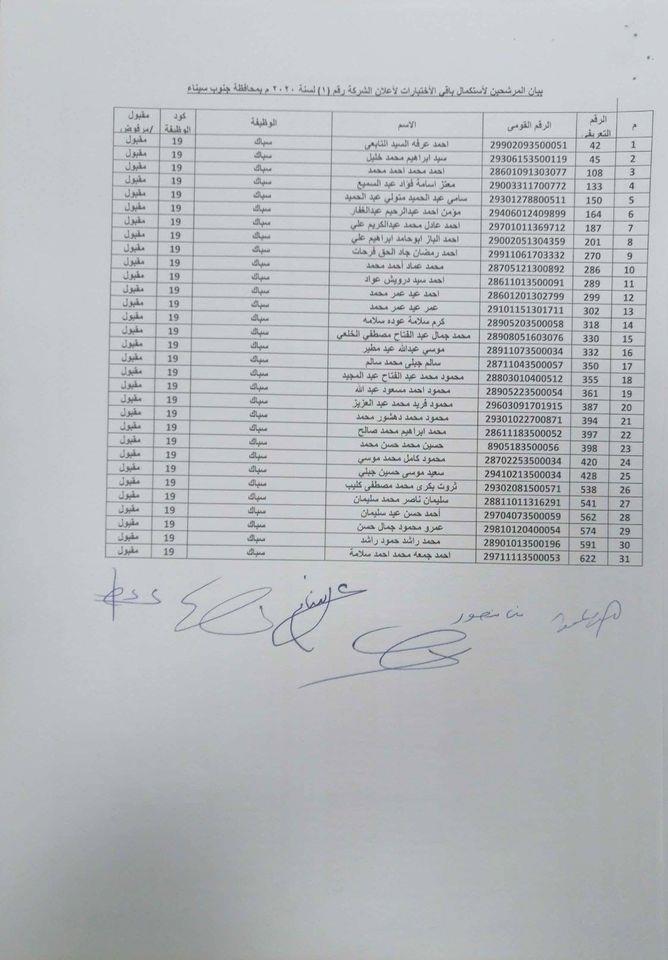 بيان المرشحين لأستكمال باقي الأختبارات لأعلان الشركة رقم (١) لسنة ٢٠٢٠ م بمحافظة جنوب سيناء
م الرقم التعريفى الرقم القومى الاسم الوظيفة كود الوظيفة مقبول /مرفوض
1 42 29902093500051 احمد عرفه السيد التابعى سباك 19 مقبول
2 45 29306153500119 سيد ابراهيم محمد خليل سباك 19 مقبول
3 108 28601091303077 احمد محمد احمد محمد سباك 19 مقبول
4 133 29003311700772 معتز اسامة فؤاد عبد السميع سباك 19 مقبول
5 150 29301278800511 سامي عبد الحميد متولي عبد الحميد سباك 19 مقبول
6 164 29406012409899 مؤمن احمد عبدالرحيم عبدالغفار سباك 19 مقبول
7 187 29701011369712 احمد عادل محمد عبدالكريم علي سباك 19 مقبول
8 201 29002051304359 احمد الباز ابوحامد ابراهيم علي سباك 19 مقبول
9 270 29911061703332 احمد رمضان جاد الحق فرحات سباك 19 مقبول
10 286 28705121300892 محمد عماد أحمد محمد سباك 19 مقبول
11 289 28611013500091 احمد سيد درويش عواد سباك 19 مقبول
12 299 28601201302799 احمد عيد عمر محمد سباك 19 مقبول
13 302 29101151301711 عمر عيد عمر محمد سباك 19 مقبول
14 318 28905203500058 كرم سلامة عوده سلامه سباك 19 مقبول
15 330 28908051603076 محمد جمال عبد الفتاح مصطفي الخلعي سباك 19 مقبول
16 332 28911073500034 موسي عبدالله عيد مطير سباك 19 مقبول
17 350 28711043500057 سالم جبلى محمد سالم سباك 19 مقبول
18 355 28803010400512 محمود محمد عبد الفتاح عبد المجيد سباك 19 مقبول
19 361 28905223500054 محمود احمد مسعود عبد الله سباك 19 مقبول
20 387 29603091701915 محمود فريد محمد عبد العزيز سباك 19 مقبول
21 394 29301022700871 محمود محمد دهشور محمد سباك 19 مقبول
22 397 28611183500052 محمد ابراهيم محمد صالح سباك 19 مقبول
23 398 8905183500056 حسين محمد حسن محمد سباك 19 مقبول
24 420 28702253500034 محمود كامل محمد موسي سباك 19 مقبول
25 428 29410213500034 سعيد موسى حسين جبلي سباك 19 مقبول
26 538 29302081500571 ثروت بكرى محمد مصطفى كليب سباك 19 مقبول
27 541 28811011316291 سليمان ناصر محمد سليمان سباك 19 مقبول
28 562 29704073500059 أحمد حسن عيد سليمان سباك 19 مقبول
29 574 29810120400054 عمرو محمود جمال حسن سباك 19 مقبول
30 591 28901013500196 محمد راشد حمود راشد سباك 19 مقبول
31 622 29711113500053 احمد جمعه محمد احمد سلامة سباك 19 مقبول